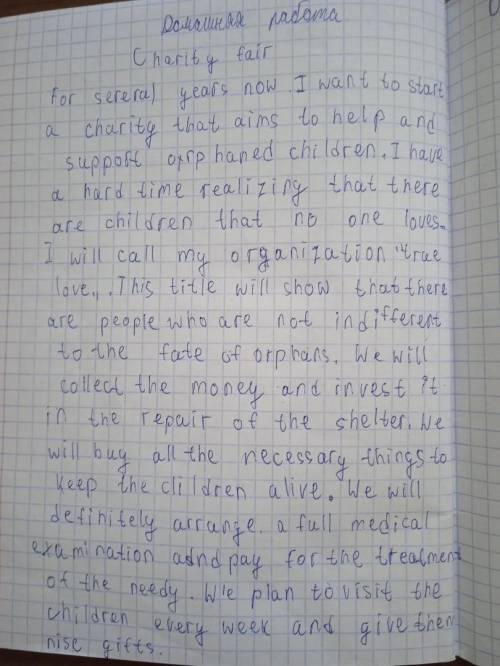 Домашняя работа
Charity fair
For several years now I want to start
a charity that aims to help and
support orphaned children. I have
a hard time realizing that there
are children that no one loves.
I will call my organization "true
love„. This title will show that there
are people who are not indifferent
to the fate of orphans. We will
collect the money and invest it
in the repair of the shelter. We
will buy all the necessary things to
keep the clildren alive. We will
definitely arrange a full medical
examination adnd pay for the treatment
of the needy. We plan to visit the
children every week and give them
nise gifts.